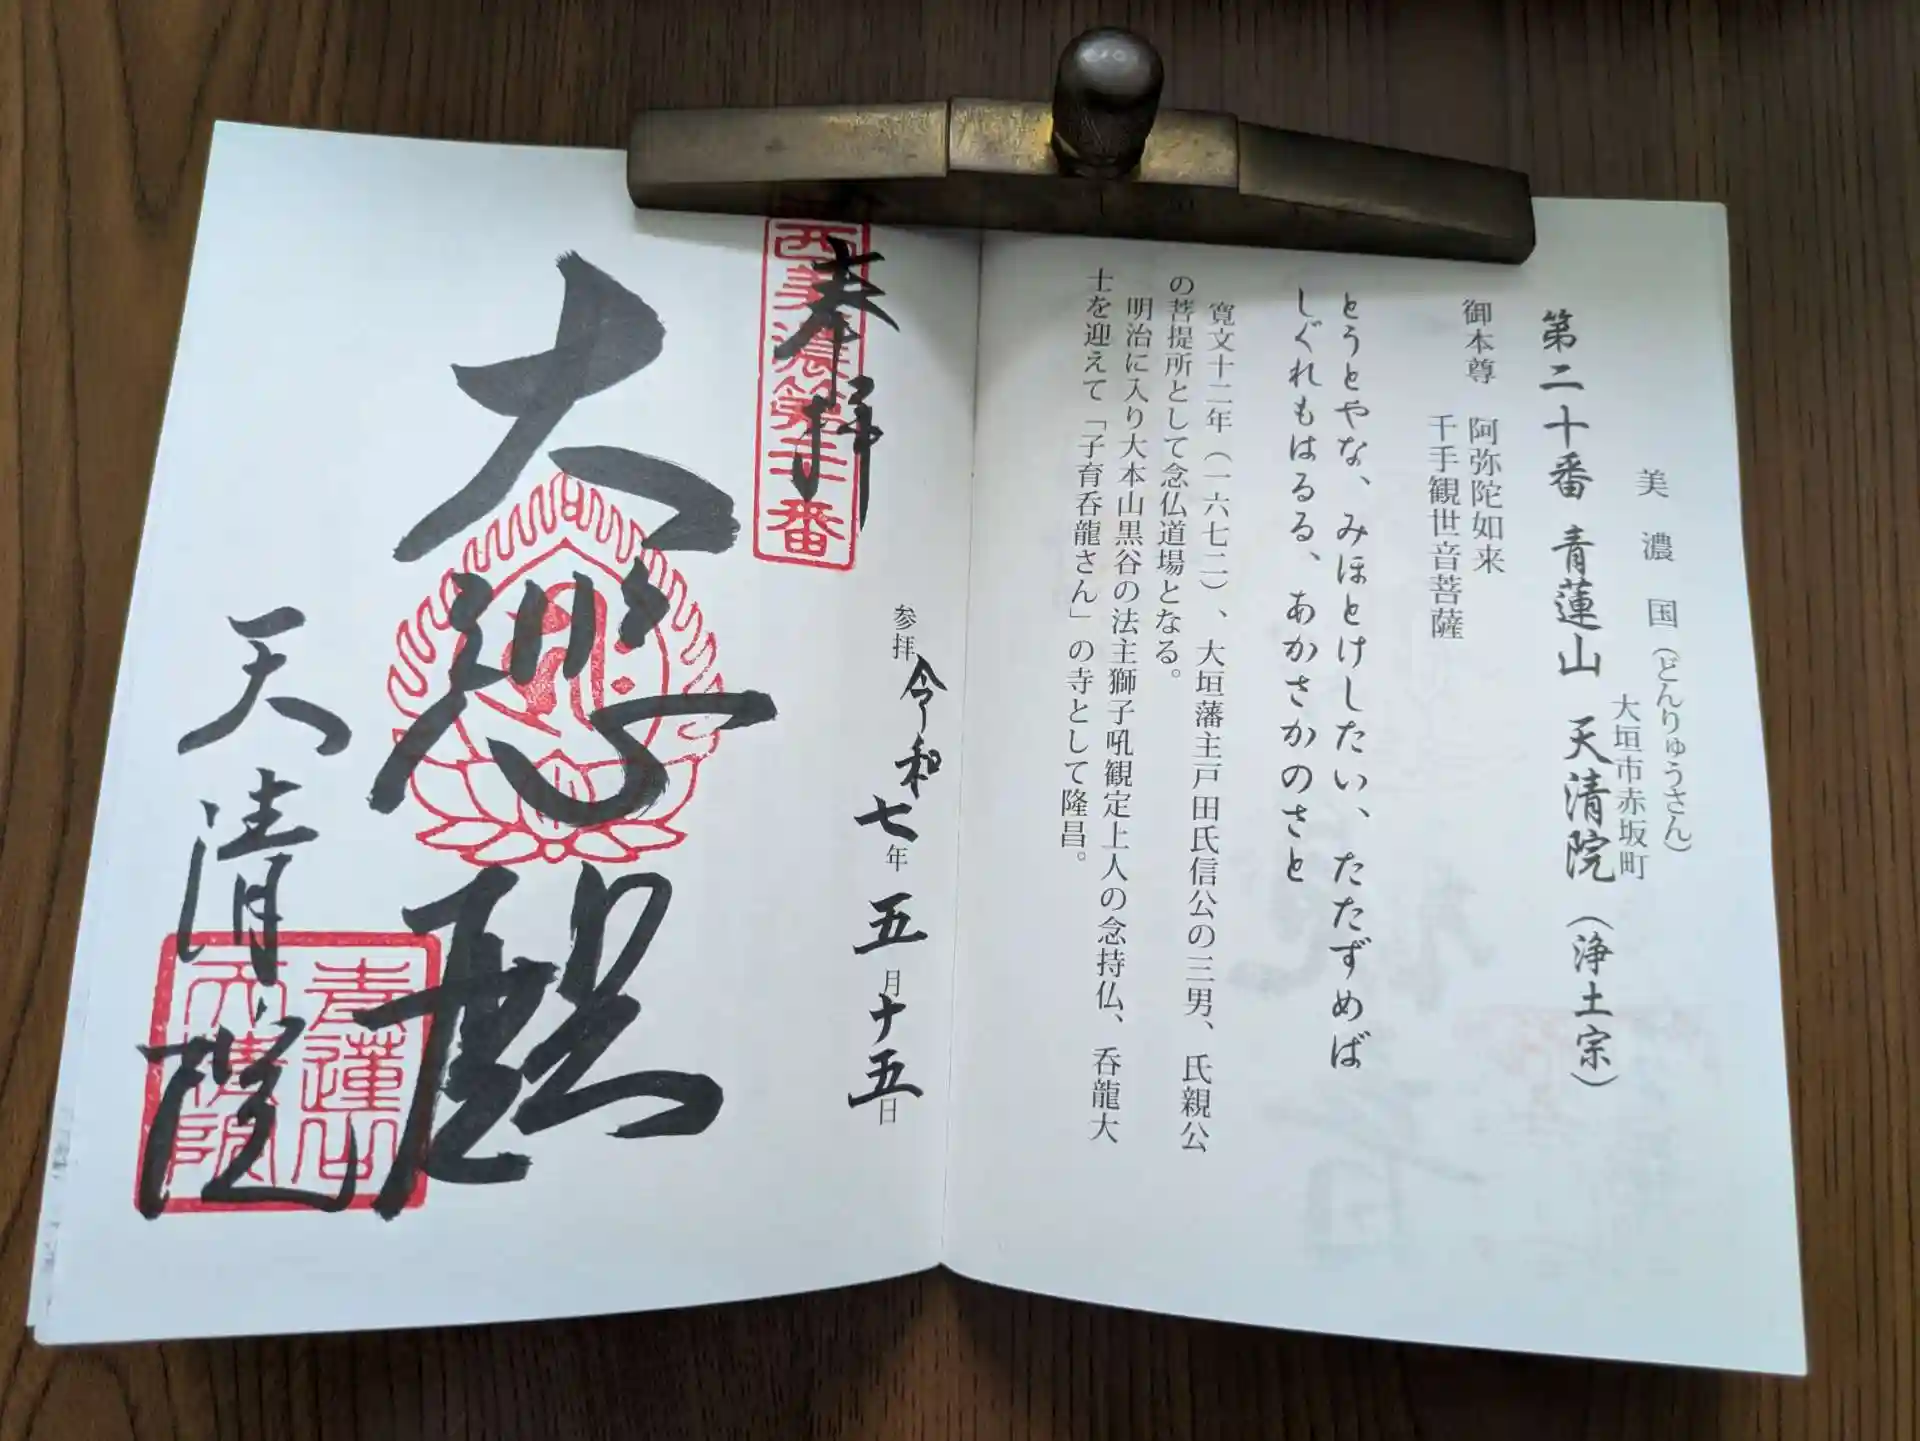 美濃国(どんりゅうさん)
大垣市赤坂町
第二十番 青蓮山 天清院(浄土宗)
御本尊 阿弥陀如来
千手観世音菩薩
とうとやな、みほとけしたい、たたずめば
しぐれもはるる、あかさかのさと
寛文十二年(一六七二)、大垣藩主戸田氏信公の三男、氏親公
の菩提所として念仏道場となる。
明治に入り大本山黒谷の法主獅子吼観定上人の念持仏、呑龍大
士を迎えて「子育呑龍さん」の寺として隆昌。
奉拝
西美濃第二十番
参拝 令和七年五月十五日
大悲殿
天清院
青蓮山
天清院